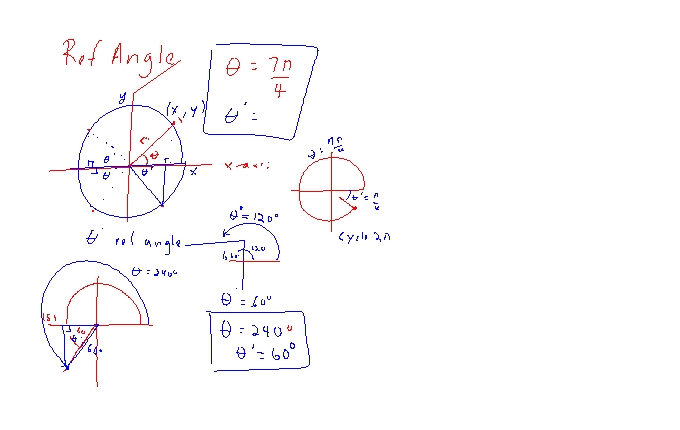 Ref Angle
θ = 7π/4
θ' =
y
(x, y)
r
θ
θ
θ
θ'
x
x-axis
θ = 7π/4
θ' = π/4
cycle 2π
θ' ref angle
θ = 120°
60°
120
θ' = 60°
θ = 240°
180
60
θ'
60°
θ = 240°
θ' = 60°